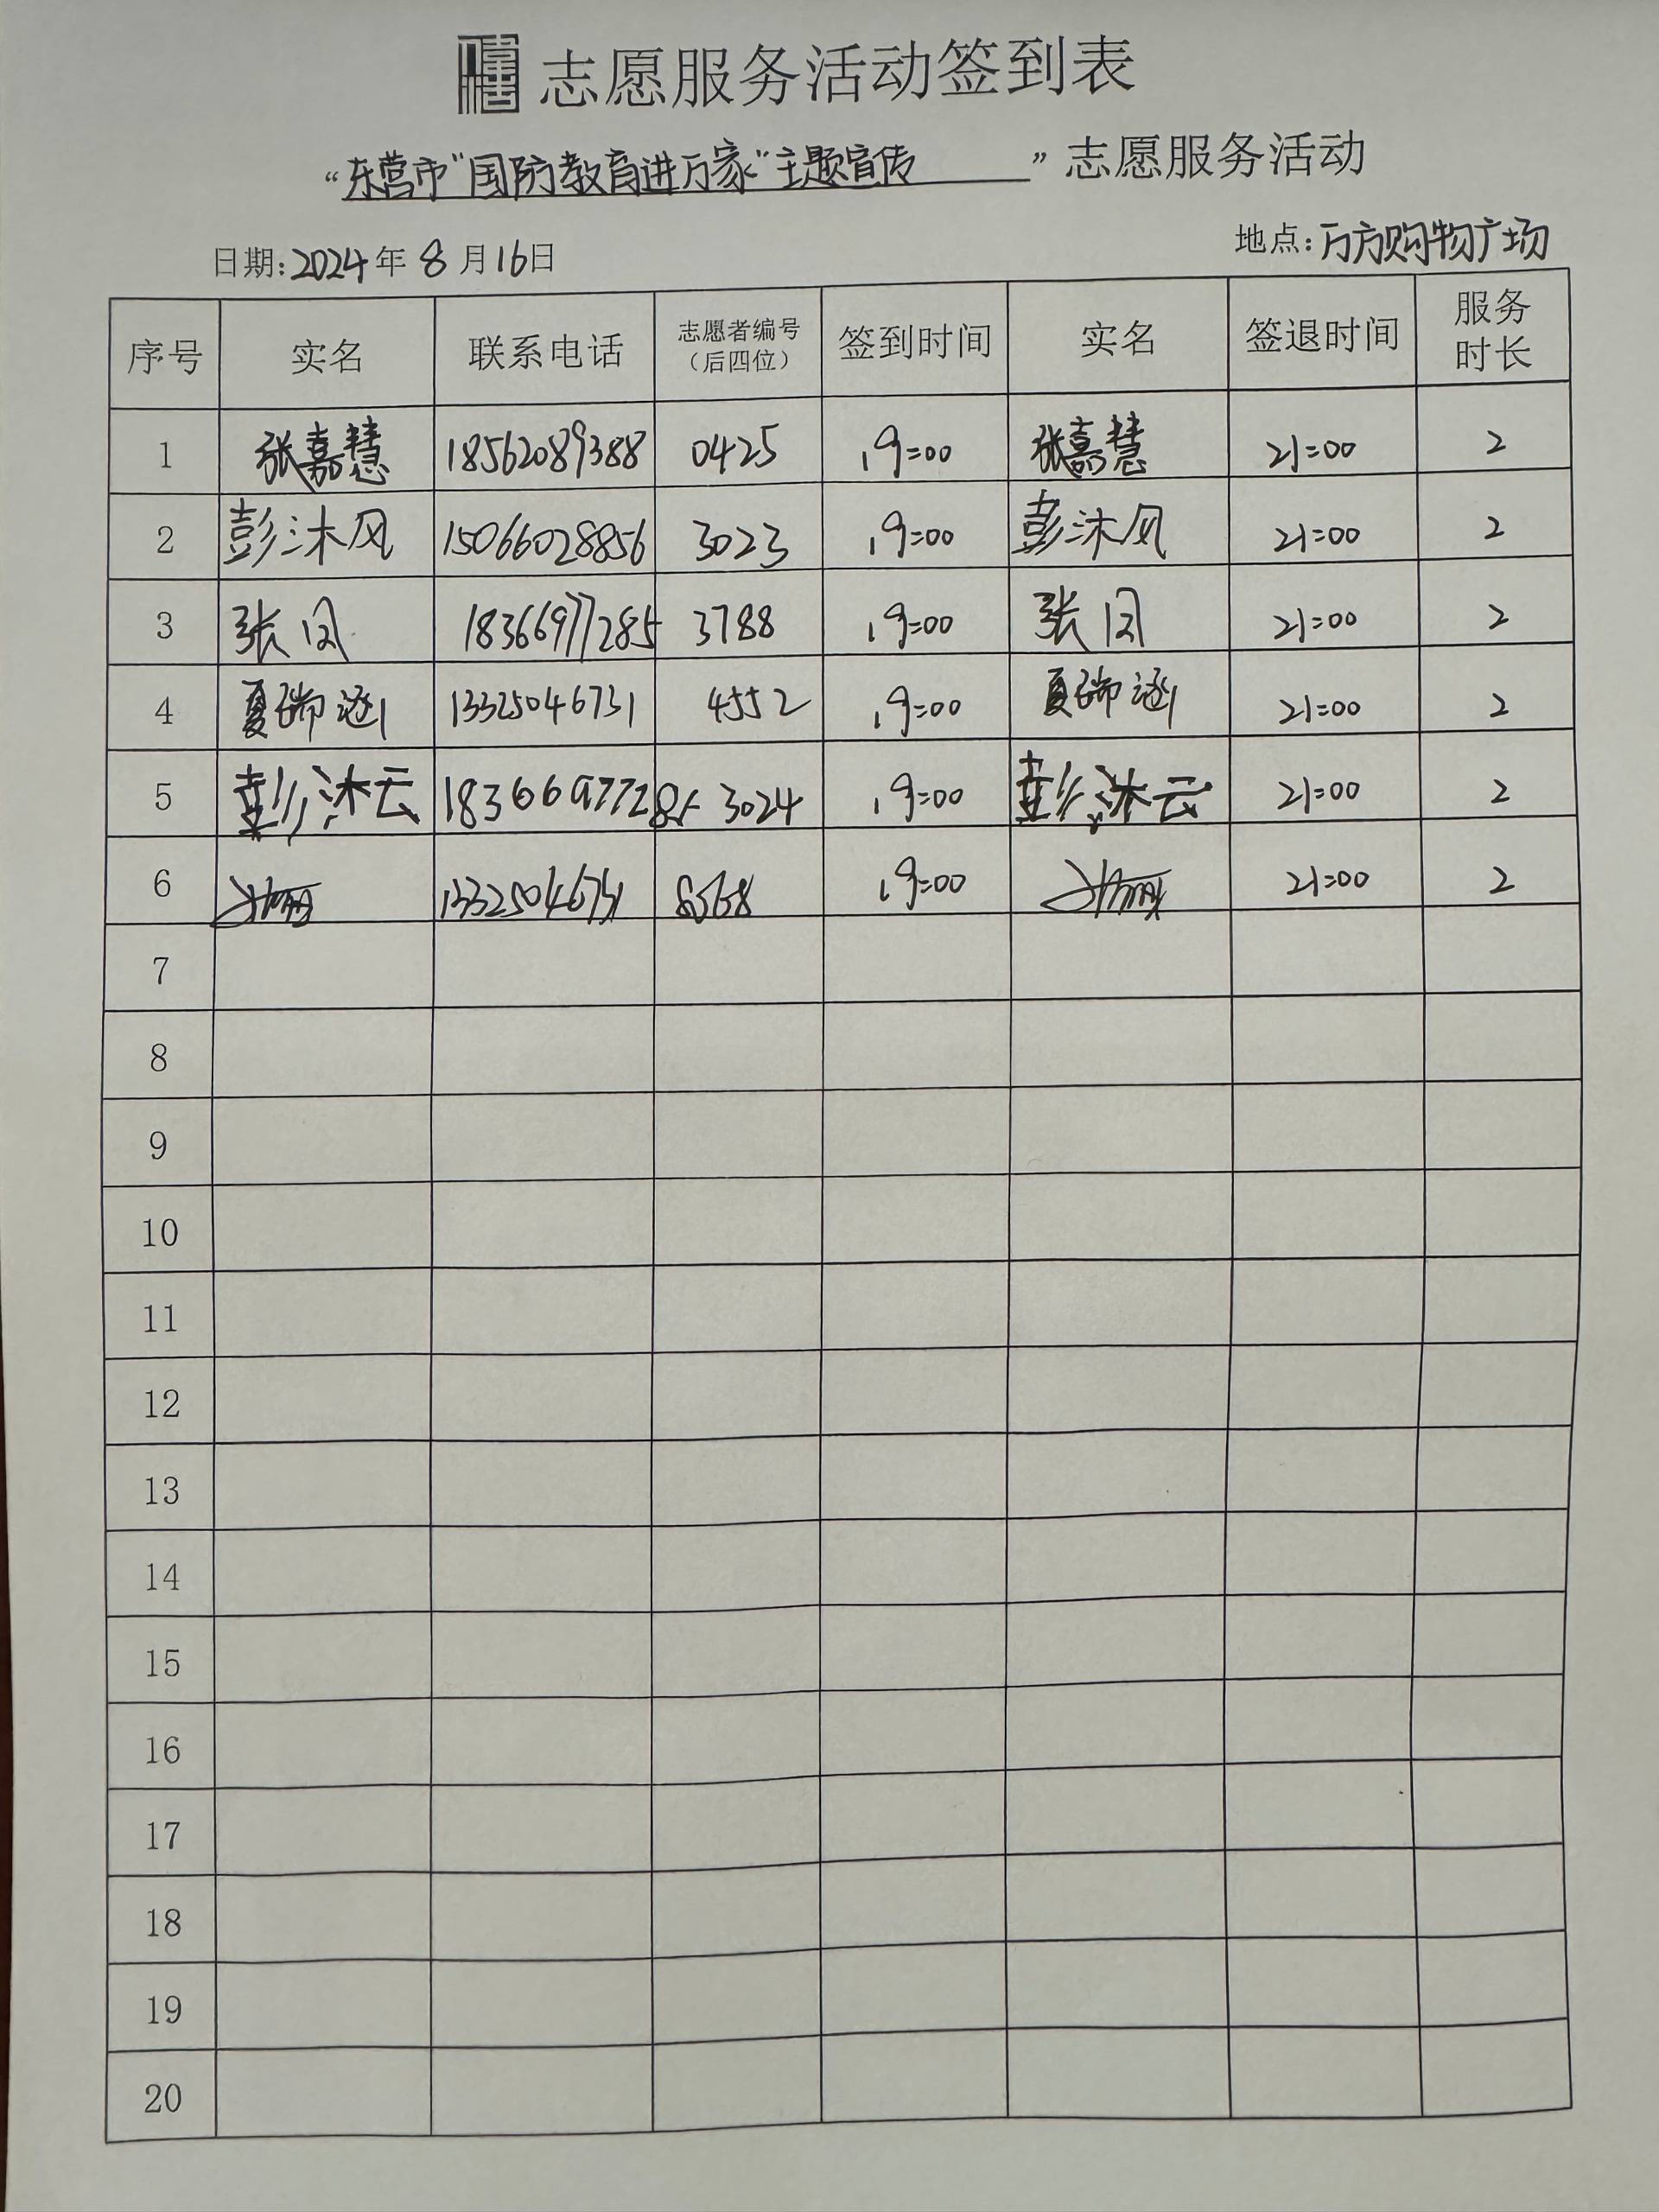 志愿服务活动签到表
“东营市"国防教育进万家"主题宣传”志愿服务活动
日期:2024年8月16日 地点:万方购物广场
序号 实名 联系电话 志愿者编号（后四位） 签到时间 实名 签退时间 服务时长
1 张嘉慧 18562089388 0425 19:00 张嘉慧 21:00 2
2 彭沐风 15066028856 3023 19:00 彭沐风 21:00 2
3 张凤 18366977285 3788 19:00 张凤 21:00 2
4 夏瑞 13325046731 4552 19:00 夏瑞 21:00 2
5 彭沐云 18366977285 3024 19:00 彭沐云 21:00 2
6 13325046731 19:00 21:00 2
7
8
9
10
11
12
13
14
15
16
17
18
19
20